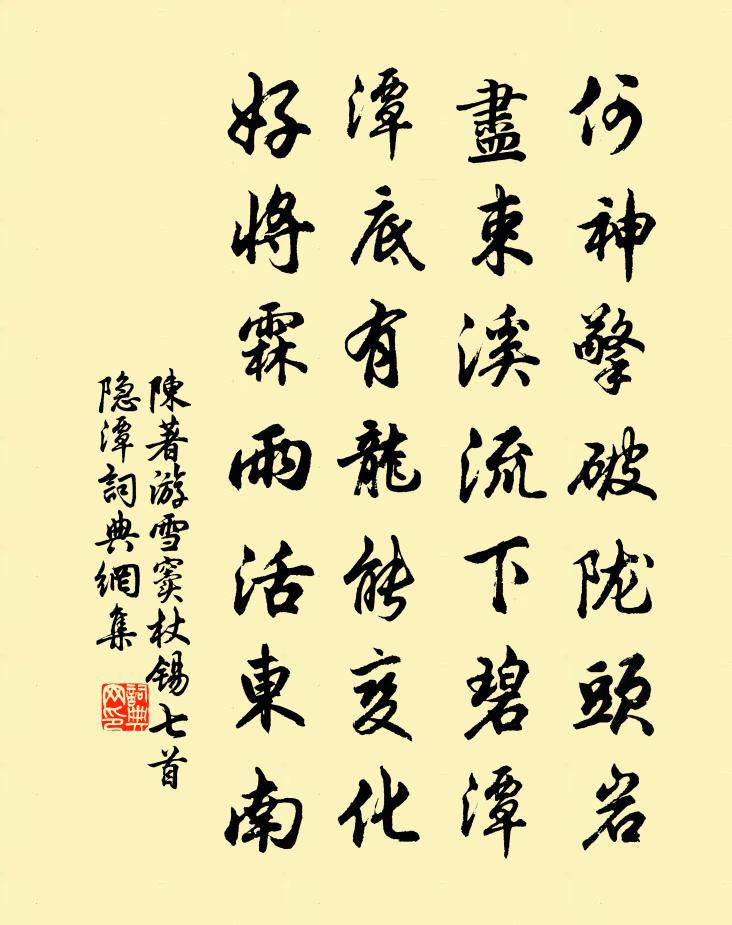 何神擎破陇頭岩
盡束溪流下碧潭
潭底有龍能变化
好将霖雨活東南
陳著游雪窦杖锡七首
隐潭詞典網集
詞典网印